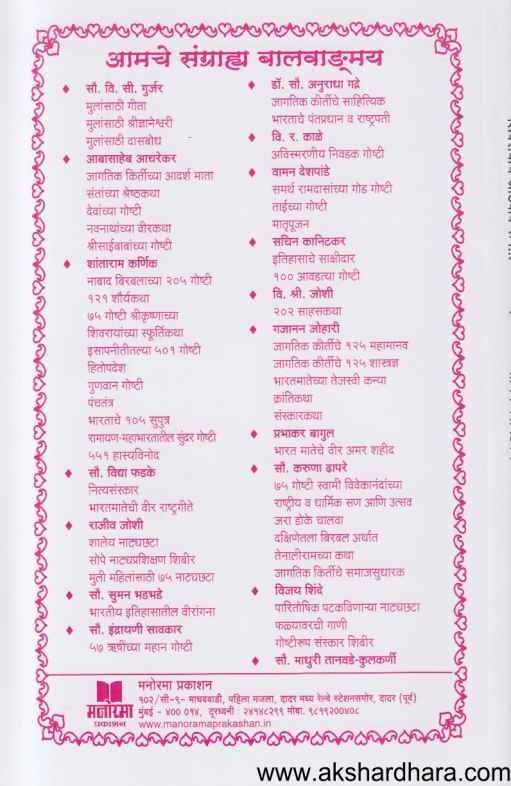 आमचे संग्राह्य बालवाङ्मय
सौ. वि. सी. गुर्जर
मुलांसाठी गीता
मुलांसाठी श्रीज्ञानेश्वरी
मुलांसाठी दासबोध
आबासाहेब आचरेकर
जागतिक किर्तीच्या आदर्श माता
संतांच्या श्रेष्ठकथा
देवांच्या गोष्टी
नवनाथांच्या वीरकथा
श्रीसाईबाबांच्या गोष्टी
शांताराम कर्णिक
नाबाद बिरबलाच्या २०५ गोष्टी
१२१ शौर्यकथा
७५ गोष्टी श्रीकृष्णाच्या
शिवरायांच्या स्फूर्तिकथा
इसापनीतीतल्या ५०१ गोष्टी
हितोपदेश
गुणवान गोष्टी
पंचतंत्र
भारताचे १०५ सुपुत्र
रामायण-महाभारतातील सुंदर गोष्टी
५५१ हास्यविनोद
सौ. विद्या फडके
नित्यसंस्कार
भारतमातेची वीर राष्ट्रगीते
राजीव जोशी
शालेय नाट्यछटा
सोपे नाट्यप्रशिक्षण शिबीर
मुली महितांसाठी ७५ नाट्यछटा
सौ. सुमन भडभडे
भारतीय इतिहासातील वीरांगना
सौ. इंद्रायणी सावकार
५७ ऋषींच्या महान गोष्टी
डॉ. सौ. अनुराधा गद्रे
जागतिक कीर्तीचे साहित्यिक
भारताचे पंतप्रधान व राष्ट्रपती
वि. र. काळे
अविस्मरणीय निवडक गोष्टी
वामन देशपांडे
समर्थ रामदासांच्या गोड गोष्टी
ताईच्या गोष्टी
मातृपूजन
सचिन कानिटकर
इतिहासाचे साक्षीदार
१०० आवडत्या गोष्टी
वि. श्री. जोशी
२०२ साहसकथा
गजानन जोहारी
जागतिक कीर्तीचे १२५ महामानव
जागतिक कीर्तीचे १२५ शास्त्रज्ञ
भारतमातेच्या तेजस्वी कन्या
क्रांतिकथा
संस्कारकथा
प्रभाकर बागुल
भारत मातेचे वीर अमर शहीद
सौ. करुणा ढापरे
७५ गोष्टी स्वामी विवेकानंदांच्या
राष्ट्रीय व धार्मिक सण आणि उत्सव
जरा डोके चालवा
दक्षिणेतला बिरबल अर्थात
तेनालीरामच्या कथा
जागतिक किर्तिचे समाजसुधारक
विजय शिंदे
पारितोषिक पटकविणाऱ्या नाट्यछटा
फळ्यावरची गाणी
गोष्टीरूप संस्कार शिबीर
सौ. माधुरी तानवडे-कुलकर्णी
मनोरमा प्रकाशन
मनोरमा
प्रकाशन
१०२/सी-९- माधववाडी, पहिला मजला, दादर मध्य रेल्वे स्टेशनसमोर, दादर (पूर्व)
मुंबई - ४०० ०१४, दूरध्वनी : २४१४८२९९ मोबा. ९८१९२००४०८
www.manoramaprakashan.in
www.akshardhara.com